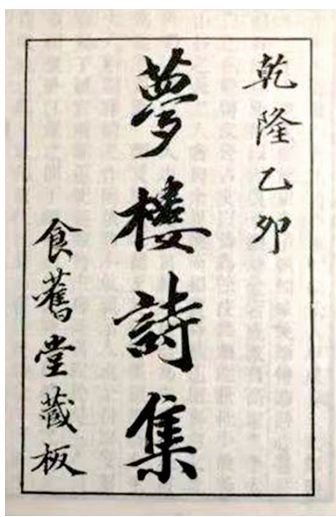 乾隆乙卯
夢樓詩集
食舊堂藏板